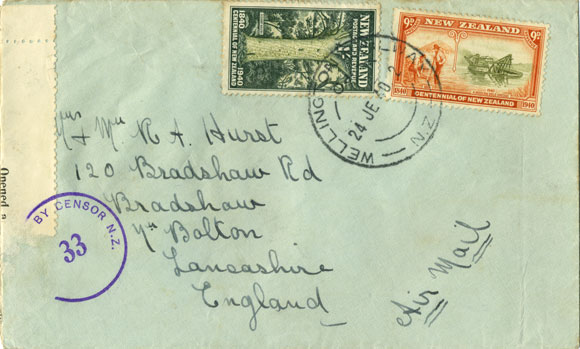 1840 1940
CENTENNIAL OF NEW ZEALAND
POSTAGE AND REVENUE
NEW ZEALAND
9D NEW ZEALAND 9D
1840 CENTENNIAL OF NEW ZEALAND 1940
WELLINGTON
24 JE 40
N.Z.
& Miss K A. Hurst
120 Bradshaw Rd
Bradshaw
Nr Bolton
Lancashire
England
Air Mail
Opened
BY CENSOR N.Z.
33